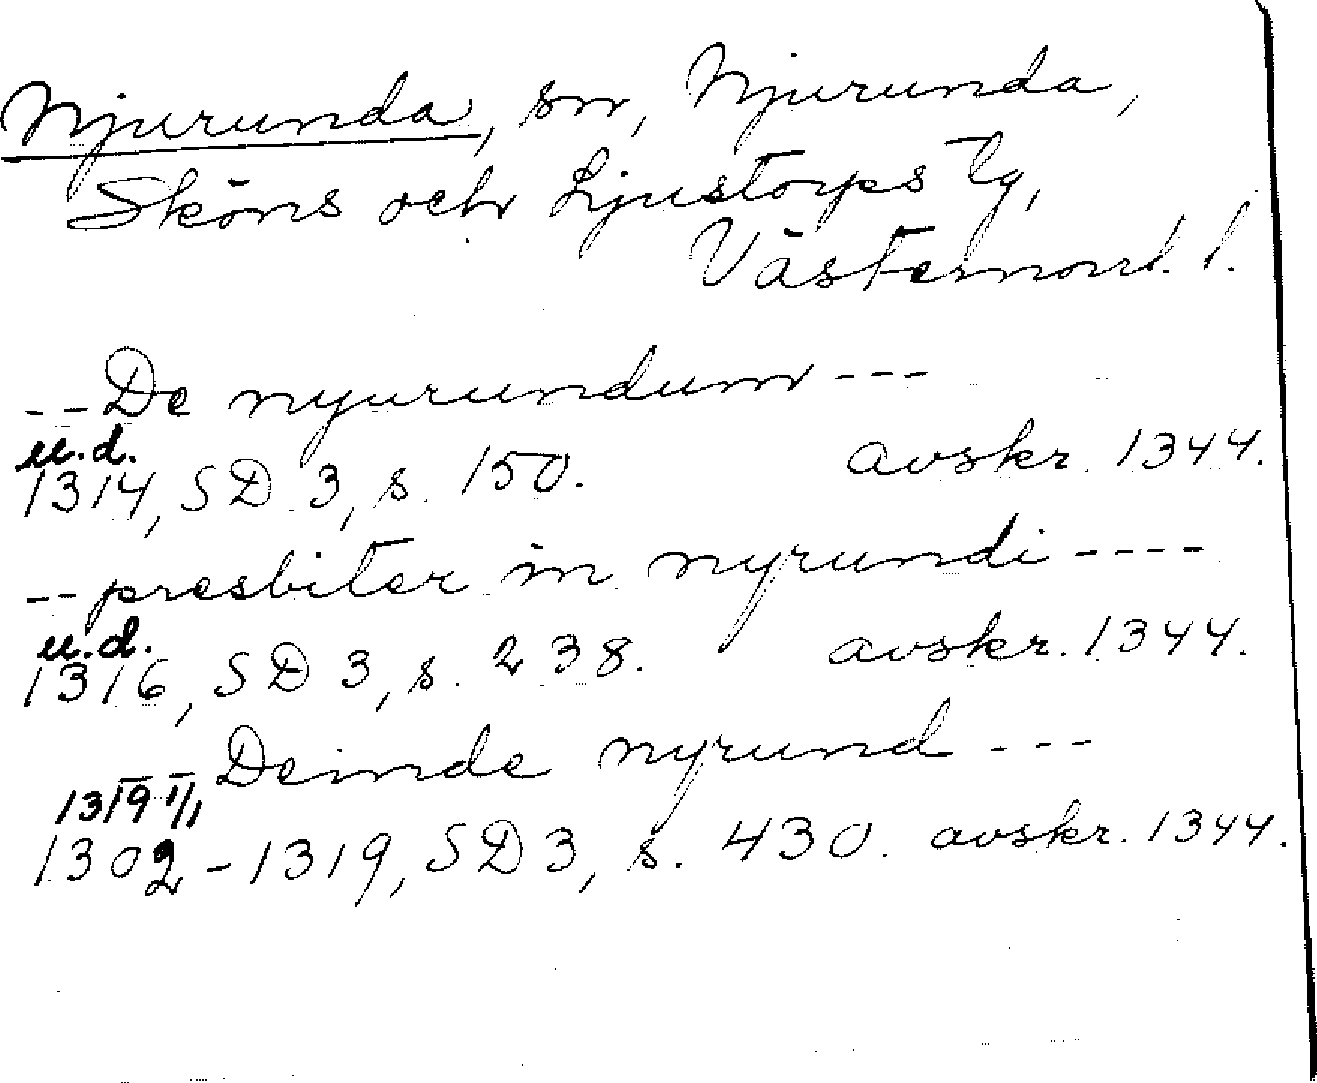 Njurunda, sn, Njurunda,
Sköns och Ljustorps tg,
Västernorrl. l.
--De nyurundum---
u.d.
1314, SD 3, s. 150. avskr. 1344.
--presbiter in nyrundi----
u.d.
1316, SD 3, s. 238. avskr. 1344.
Deinde nyrund---
1319 1/1
1302-1319, SD 3, s. 430. avskr. 1344.